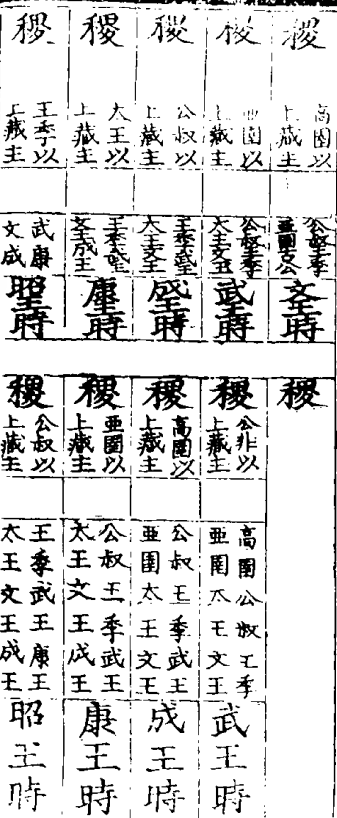 稷
高圉以
上藏主
公叔王季
文王時
稷
亞圉以
上藏主
公叔王季
太王文王
武王時
稷
公叔以
上藏主
王季武王
太王文王
成王時
稷
大王以
上藏主
王季武王
文王成王
康王時
稷
王季以
上藏主
武康
文成
昭王時
稷
稷
公非以
上藏主
高圉公叔王季
亞圉太王文王
武王時
稷
高圉以
上藏主
公叔王季武王
亞圉太王文王
成王時
稷
亞圉以
上藏主
公叔王季武王
太王文王成王
康王時
稷
公叔以
上藏主
王季武王康王
太王文王成王
昭王時